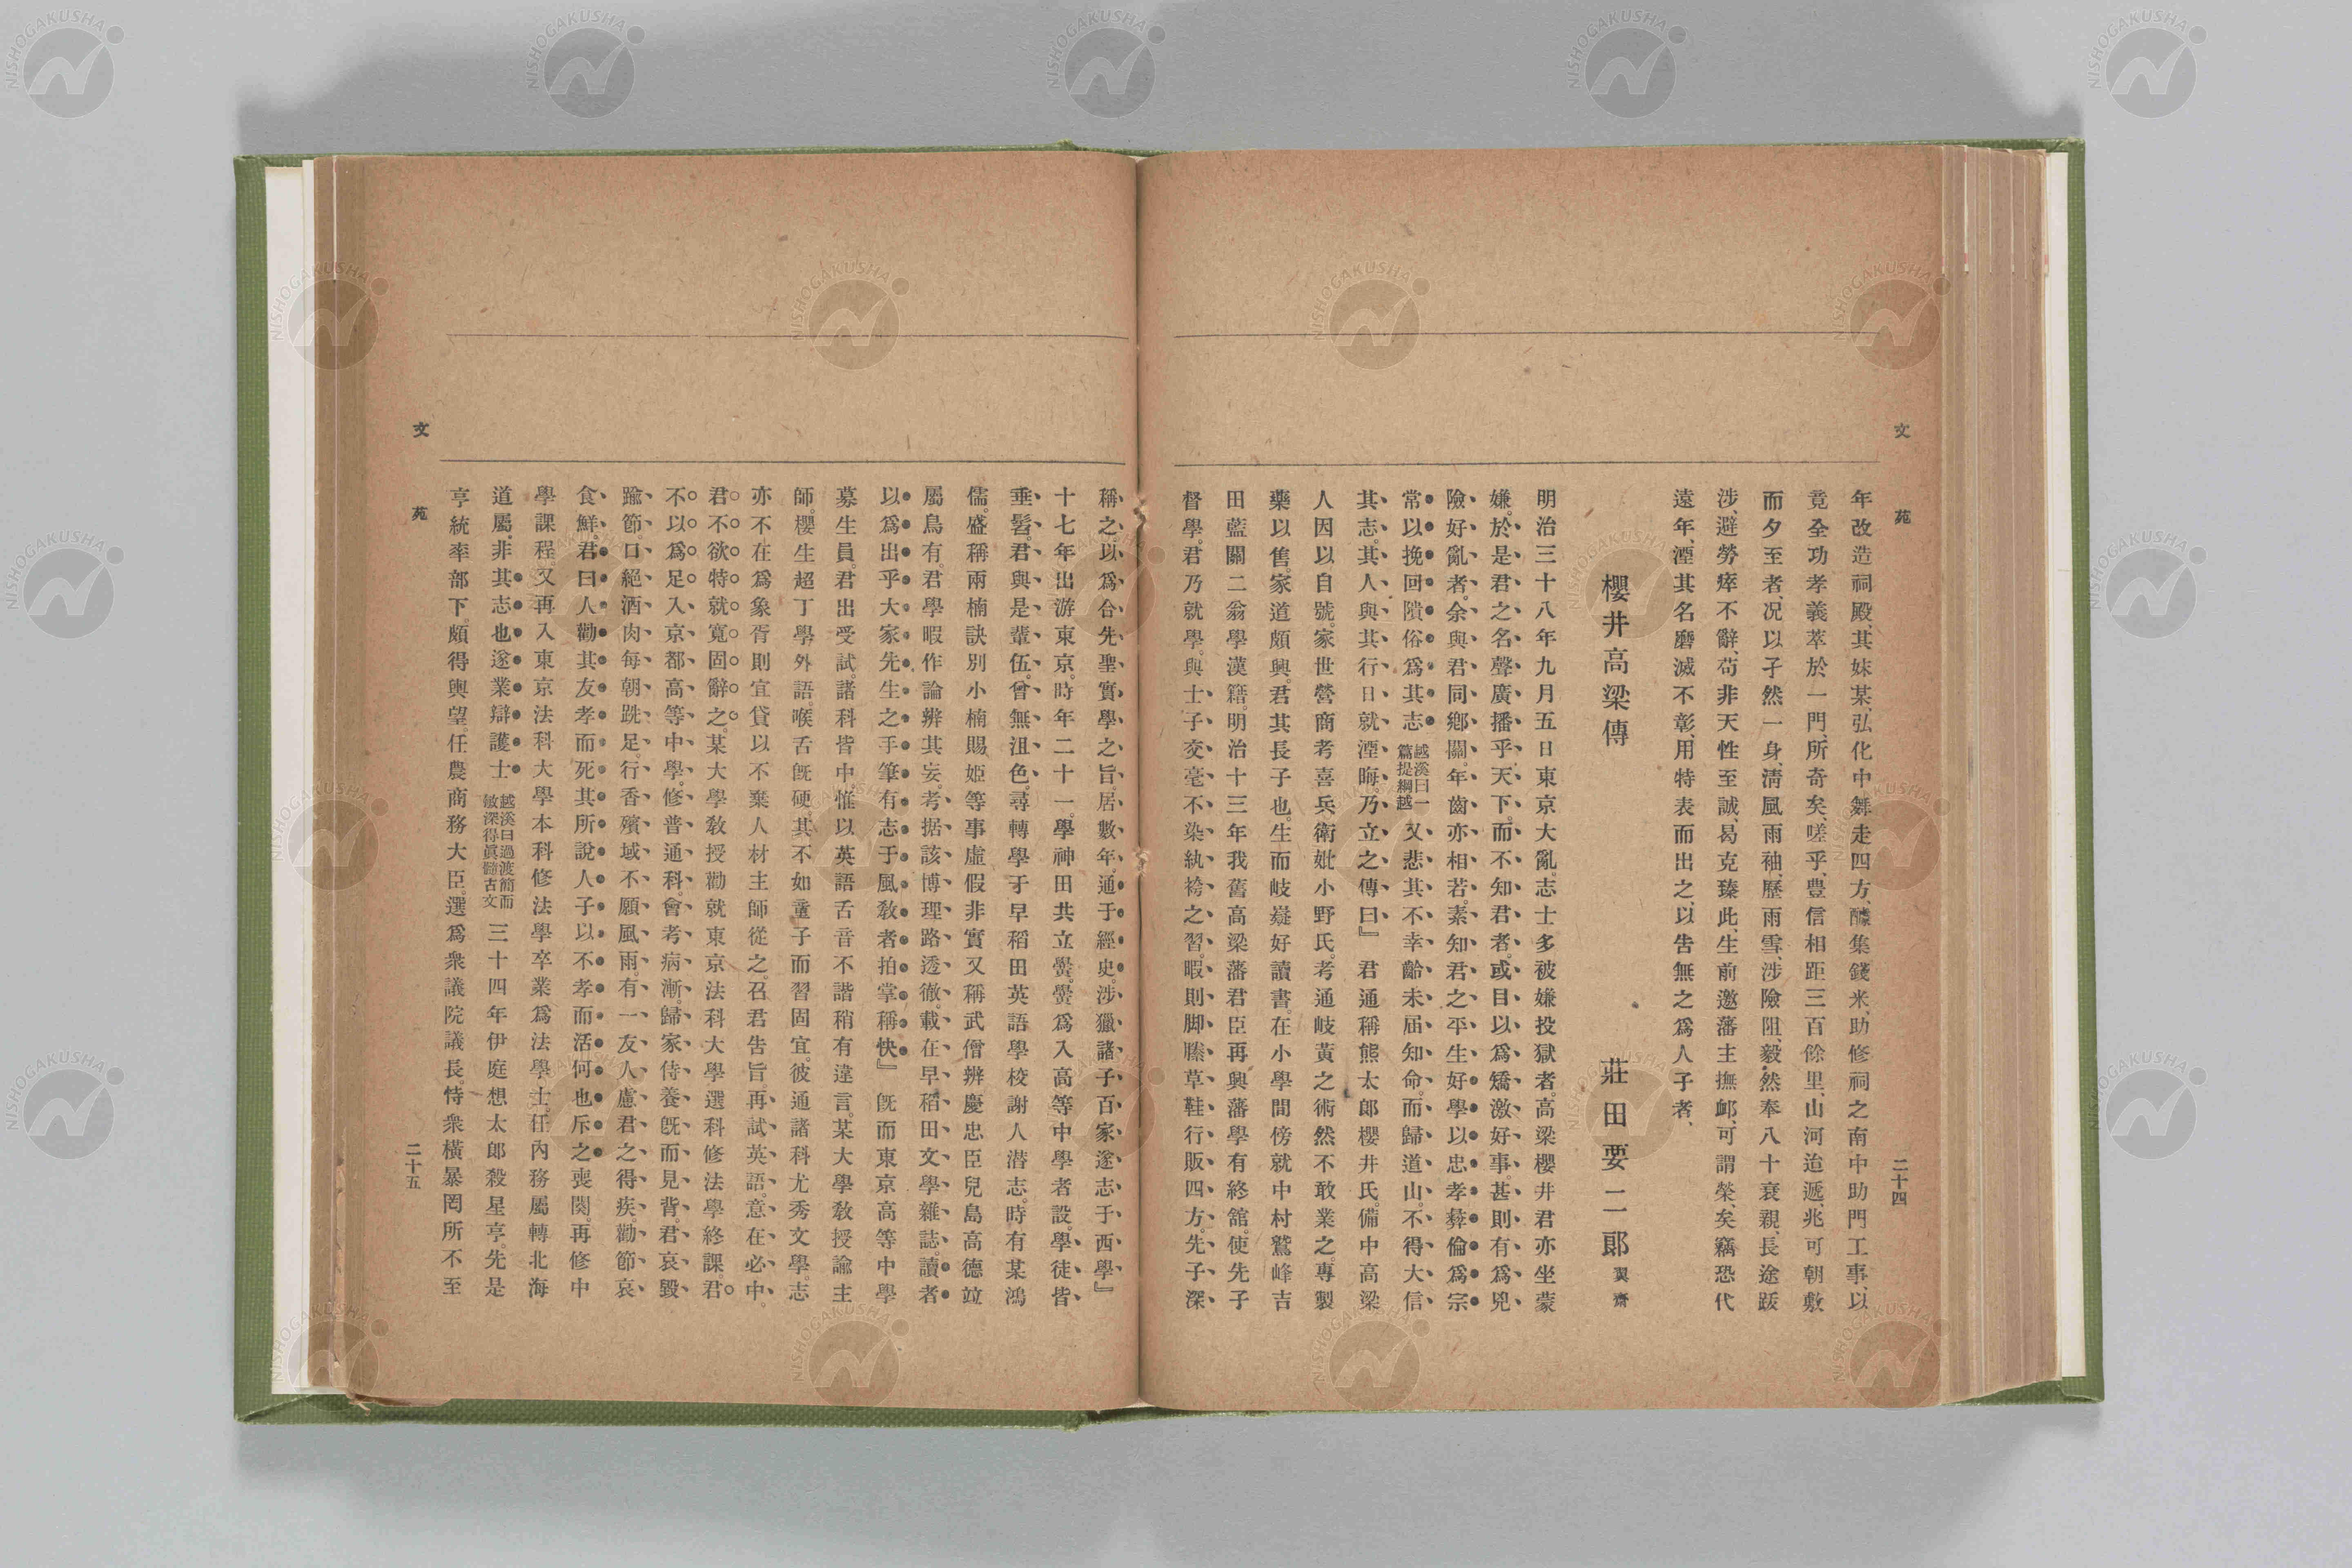 文苑
二十四
年改造祠殿、其妹某、弘化中舞走四方、醵集錢米、助修祠之南中助門工事、以
竟全功孝義萃於一門、所奇矣、嗟乎、豊信相距三百餘里、山河迨遞、兆可朝敷
而夕至者、况以孑然一身、淸風雨袖、歷雨雪、涉險阻、毅然奉八十衰親、長途跋
涉、避勞瘁不辭、苟非天性至誠、曷克臻此、生前邀藩主撫邺、可謂榮、矣竊恐代
遠年、湮其名磨滅不彰、用特表而出之、以告無之爲人子者、
櫻井高梁傳 莊田要二郎 翼齋
明治三十八年九月五日東京大亂。志士多被嫌投獄者。高梁櫻井君亦坐蒙
嫌。於是君之名聲廣播乎天下。而不知君者。或目以爲矯激好事。甚則有爲兇
險好亂者。余與君同鄕關。年齒亦相若。素知君之平生好學以忠孝彝倫爲宗
常以挽回隤俗爲其志 越溪曰一篇提綱越 又悲其不幸齡未屆知命。而歸道山。不得大信
其志。其人與其行日就湮晦。乃立之傳曰』 君通稱熊太郎櫻井氏。備中高梁
人因以自號。家世營商考喜兵衞妣小野氏。考通岐黃之術然不敢業之。專製
藥以售。家道頗興。君其長子也。生而岐嶷好讀書。在小學間傍就中村鷲峰吉
田藍關二翁學漢籍。明治十三年我舊高梁藩君臣再興藩學有終舘使先子
督學。君乃就學。與士子交毫不染紈袴之習。暇則脚縢草鞋行販四方。先子深
稱之。以爲合先聖實學之旨。居數年。通于經史。涉獵諸子百家遂志于西學』
十七年出游東京。時年二十一。學神田共立黌。黌爲入高等中學者設。學徒皆
垂髫。君與是輩伍。曾無沮色。尋轉學于早稻田英語學校謝人潛志。時有某鴻
儒。盛稱兩楠訣別小楠賜姬等事虛假非實又稱武僧辨慶忠臣兒島高德竝
屬烏有。君學暇作論辨其妄。考据該博理路透徹。載在早稻田文學雜誌。讀者
以爲出乎大家先生之手筆有志于風敎者拍掌稱快』 旣而東京高等中學
募生員。君出受試。諸科皆中。惟以英語舌音不諧稍有違言。某大學敎授諭主
師。櫻生超丁學外語。喉舌旣硬。其不如童子而習固宜。彼通諸科尤秀文學。志
亦不在爲象胥則宜貸以不棄人材主師從之。召君告旨。再試英語。意在必中。
君不欲特就寬固辭之。某大學敎授勸就東京法科大學選科修法學終課。君
不以爲足入京都高等中學。修普通科。會考病漸。歸家侍養旣而見背。君哀毀
踰節。口絕酒肉每朝跣足、行香殯域不願風雨。有一友人慮君之得疾。勸節哀
食鮮。君曰人勸其友孝而死其所說人子以不孝而活何也斥之喪闋。再修中
學課程。又再入東京法科大學本科修法學卒業爲法學士。任內務屬轉北海
道屬。非其志也。遂業辯護士 越溪曰過渡簡而敏深得眞髓古文 三十四年伊庭想太郞殺星亨。先是
亨統率部下。頗得輿望。任農商務大臣。選爲衆議院議長。恃衆橫暴罔所不至
文苑
二十五